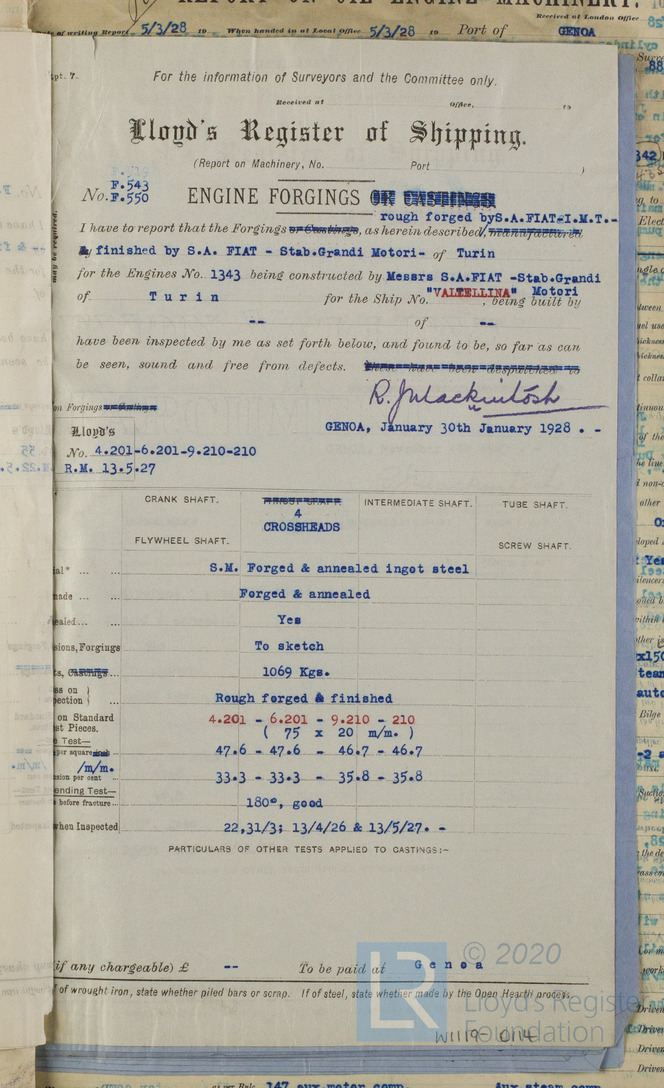 5/3/28 19 When handed in at Local Office 5/3/28 19 Port of GENOA
Received at London Office
For the information of Surveyors and the Committee only.
Received at Office, 19
Lloyd's Register of Shipping.
(Report on Machinery, No. Port )
No. F.543
F.550
ENGINE FORGINGS OR CASTINGS
rough forged byS.A.FIAT-I.M.T.-
I have to report that the Forgings or Castings, as herein described, manufactured
& finished by S.A. FIAT - Stab.Grandi Motori- of Turin
for the Engines No. 1343 being constructed by Messrs S.A.FIAT -Stab.Grandi
Motori
of Turin for the Ship No. "VALTELLINA", being built by
-- of --
have been inspected by me as set forth below, and found to be, so far as can
be seen, sound and free from defects. These have been despatched to
R. J. Mackintosh
on Forgings
GENOA, January 30th January 1928 . -
Lloyd's
No. 4.201-6.201-9.210-210
R.M. 13.5.27
CRANK SHAFT. THRUST SHAFT INTERMEDIATE SHAFT. TUBE SHAFT.
4
CROSSHEADS
FLYWHEEL SHAFT. SCREW SHAFT.
S.M. Forged & annealed ingot steel
Forged & annealed
Yes
sions, Forgings To sketch
Castings 1069 Kgs.
Rough forged & finished
on Standard
st Pieces.
4.201 - 6.201 - 9.210 - 210
( 75 x 20 m/m. )
Test—
per square inch 47.6 - 47.6 - 46.7 - 46.7
/m/m.
sion per cent 33.3 - 33.3 - 35.8 - 35.8
ending Test—
before fracture 180°, good
when Inspected 22,31/3; 13/4/26 & 13/5/27. -
PARTICULARS OF OTHER TESTS APPLIED TO CASTINGS:—
if any chargeable) £ -- To be paid at Genoa
of wrought iron, state whether piled bars or scrap. If of steel, state whether made by the Open Hearth process.
© 2020
LR
Lloyd's Register
Foundation
W1119 0114
147 aux motor comp. Aux steam comp.